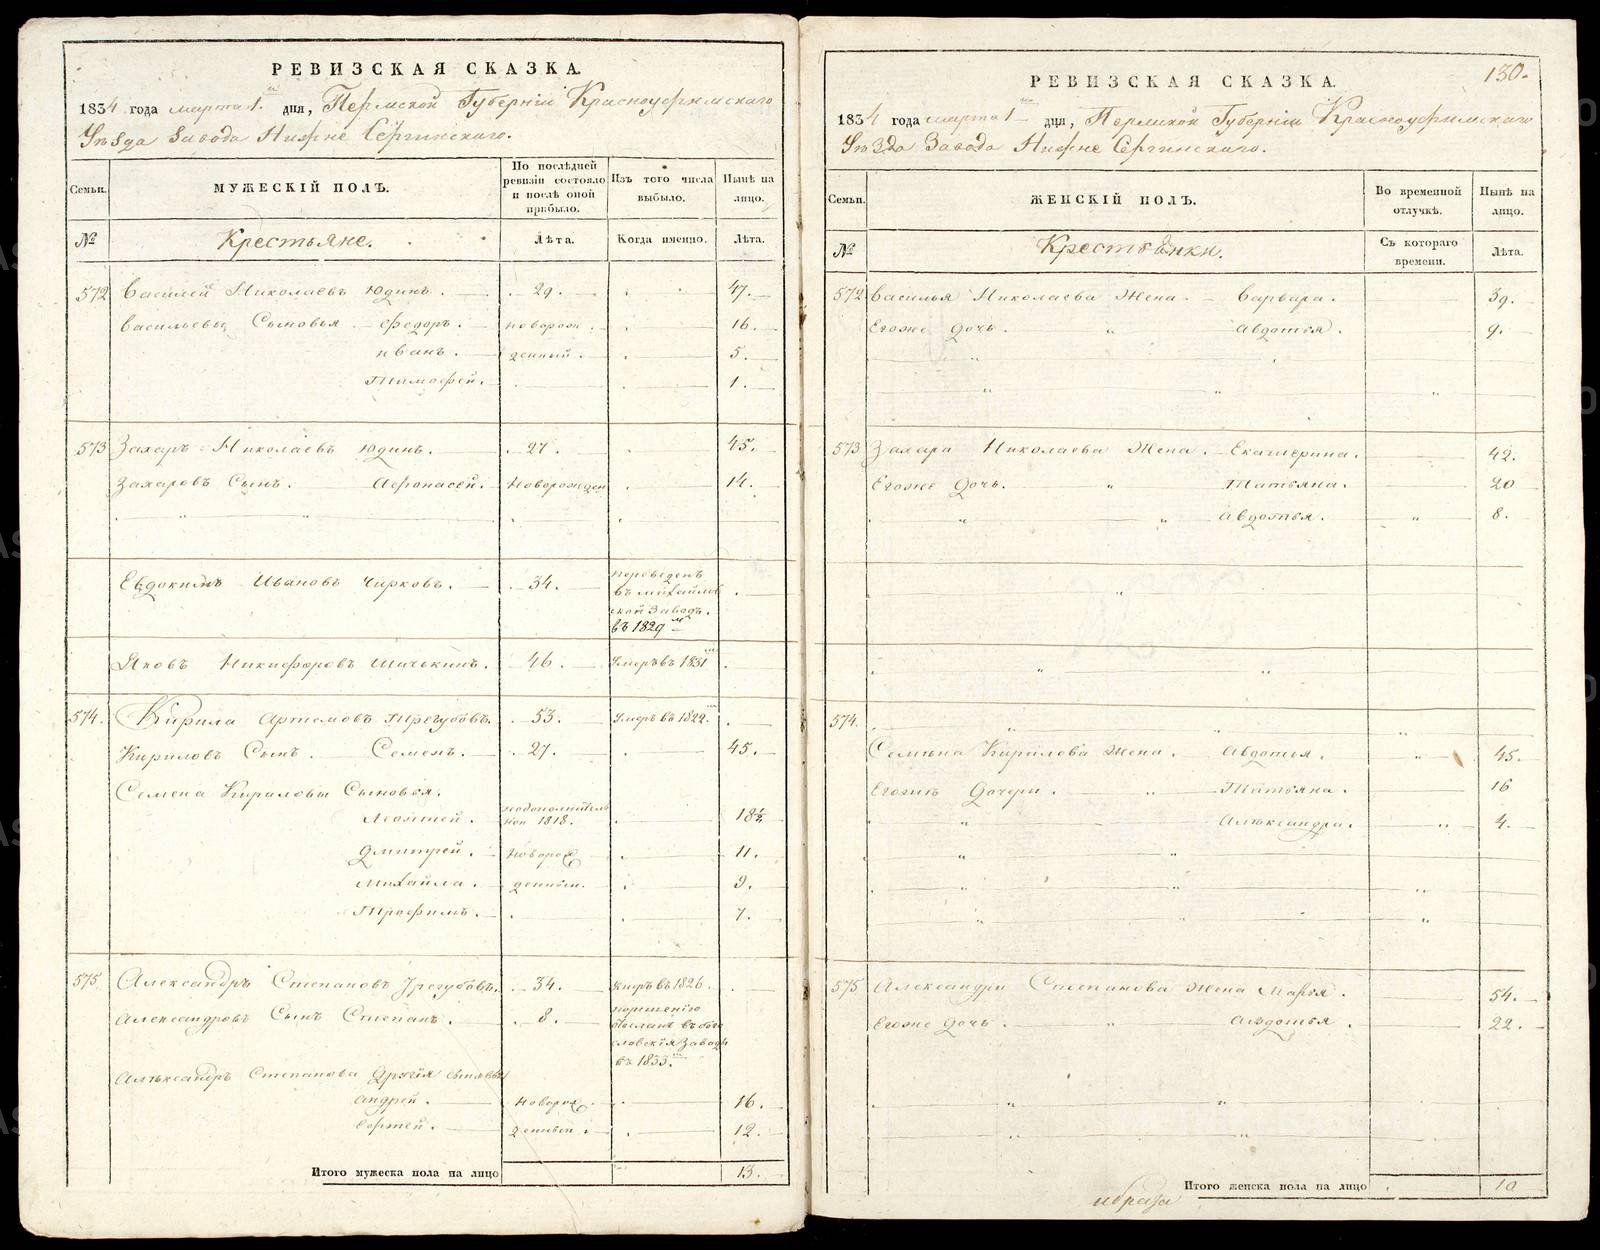 РЕВИЗСКАЯ СКАЗКА.
1834 года марта 1. дня, Пермской Губернiи Красноуфимскаго
Уѣзда Завода Нижне Сергинскаго.
Семьи. МУЖЕСКIЙ ПОЛЪ. По послѣдней ревизiи состояло и послѣ оной прибыло. Изъ того числа выбыло. Нынѣ на лицо.
№ Крестьяне. Лѣта. Когда именно. Лѣта.
572 Василей Николаевъ Юдинъ. 29. 47.
Васильевы Сыновья Федоръ. новорож 16.
Иванъ. денный. 5.
Тимофей. 1.
573 Захаръ Николаевъ Юдинъ. 27. 45.
Захаровъ Сынъ. Афонасей. Новорожден 14.
Евдокимъ Ивановъ Чирковъ. 34. переведенъ
въ михайлов
ской Заводъ.
въ 1829мъ
Яковъ Никифоровъ 46. Умеръ въ 1831
574. Кирила Артемовъ Трегубовъ. 53. Умеръ въ 1822.
Кириловъ Сынъ. Семенъ. 27. 45.
Семена Кирилова Сыновья.
Леонтей. 1818. 18½
Дмитрей. Новорож 11.
Михайла. денныи. 9.
Трофимъ. 7.
575 Александръ Степановъ Трегубовъ. 34. умеръ въ 1826.
Александровъ Сынъ Степанъ. 8. порешенiю
посланъ въ бого
словскiя Заводы
въ 1833.
Александръ Степанова Другiя сыновья
Андрей. Новорож 16.
Сергей. денныи. 12.
Итого мужеска пола на лицо 13.
130.
РЕВИЗСКАЯ СКАЗКА.
1834 года марта 1 дня, Пермской Губернiи Красноуфимскаго
Уѣзда Завода Нижне Сергинскаго.
Семьи. ЖЕНСКIЙ ПОЛЪ. Во временной отлучкѣ. Нынѣ на лицо.
№ Крестьянки. Съ котораго времени. Лѣта.
572 Василья Николаева Жена. Варвара. 39.
Егоже Дочь. Авдотья. 9.
573 Захара Николаева Жена. Екатерина. 42.
Егоже Дочь. Татьяна. 20
Авдотья. 8.
574.
Семена Кирилова Жена. Авдотья. 45.
Дочери. Татьяна. 16
Александра. 4.
575 Александра Степанова Жена Марья. 54.
Егоже Дочь. Авдотья. 22.
Итого женска пола на лицо 10